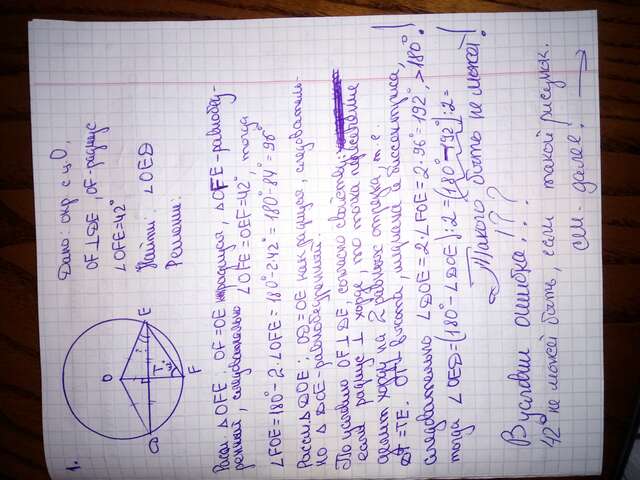 1.
O
D
E
T
F
42°
Дано: окр с ц О,
OF⊥DE, OF-радиус
∠OFE=42°
Найти: ∠OED
Решение:
Расм △OFE: OF=OE радиуса, △OFE-равнобед-
ренный, следовательно ∠OFE=OEF=42°, тогда
∠FOE=180°-2·∠OFE=180°-2·42°=180°-84°=96°
Рассм △DOE: OD=OE как радиуса, следователь-
но △DOE-равнобедренный.
По условию OF⊥DE, согласно свойству:
если радиус ⊥ хорде, то точка пересечения
делит хорду на 2 равных отрезка, т.е.
DT=TE. высота, медиана и биссектриса,
следовательно ∠DOE=2·∠FOE=2·96°=192°, >180°!
тогда ∠OED=(180°-∠DOE):2=(180°-192°):2=
Такого быть не может!
В условии ошибка!??
42° не может быть, если такой рисунок.
см. далее. →